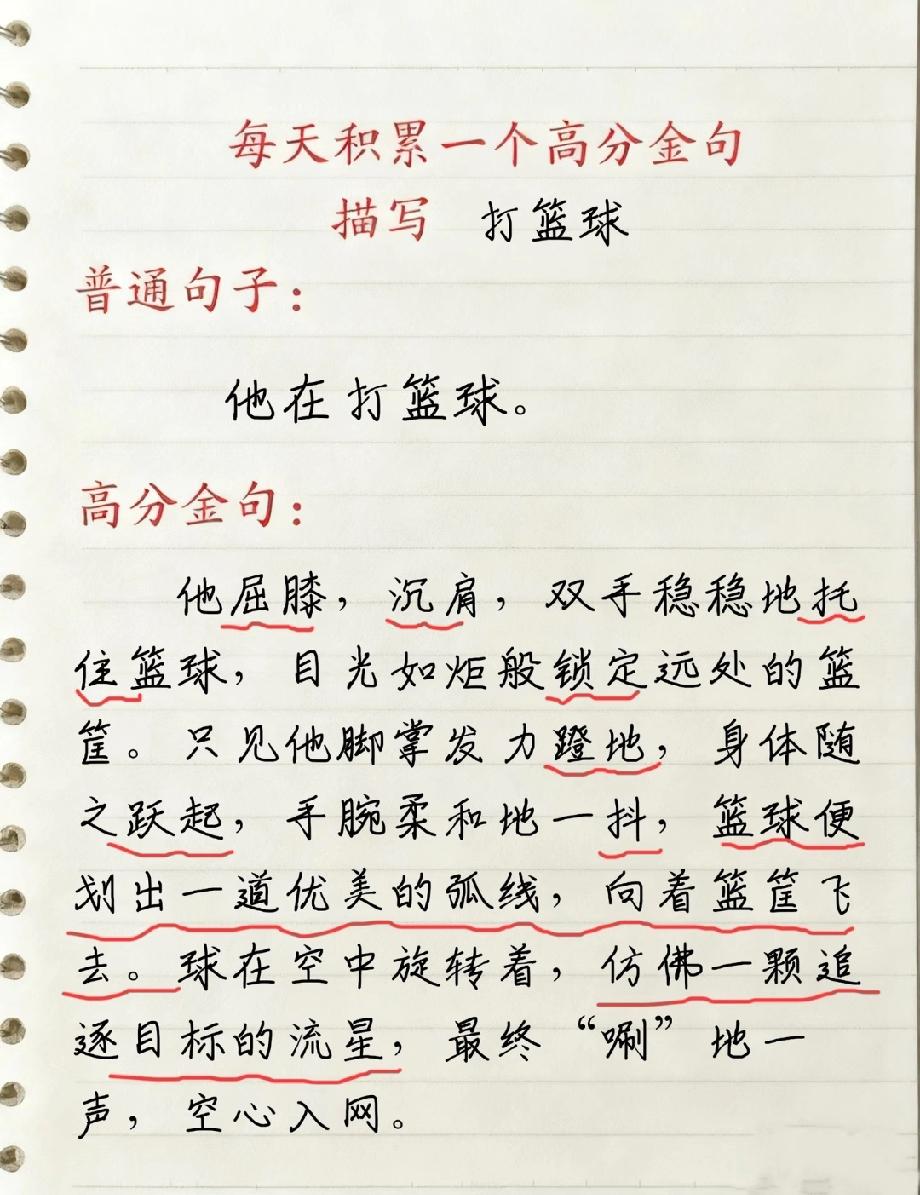 每天积累一个高分金句
描写 打篮球
普通句子：
他在打篮球。
高分金句：
他屈膝，沉肩，双手稳稳地托
住篮球，目光如炬般锁定远处的篮
筐。只见他脚掌发力蹬地，身体随
之跃起，手腕柔和地一抖，篮球便
划出一道优美的弧线，向着篮筐飞
去。球在空中旋转着，仿佛一颗追
逐目标的流星，最终“唰”地一
声，空心入网。